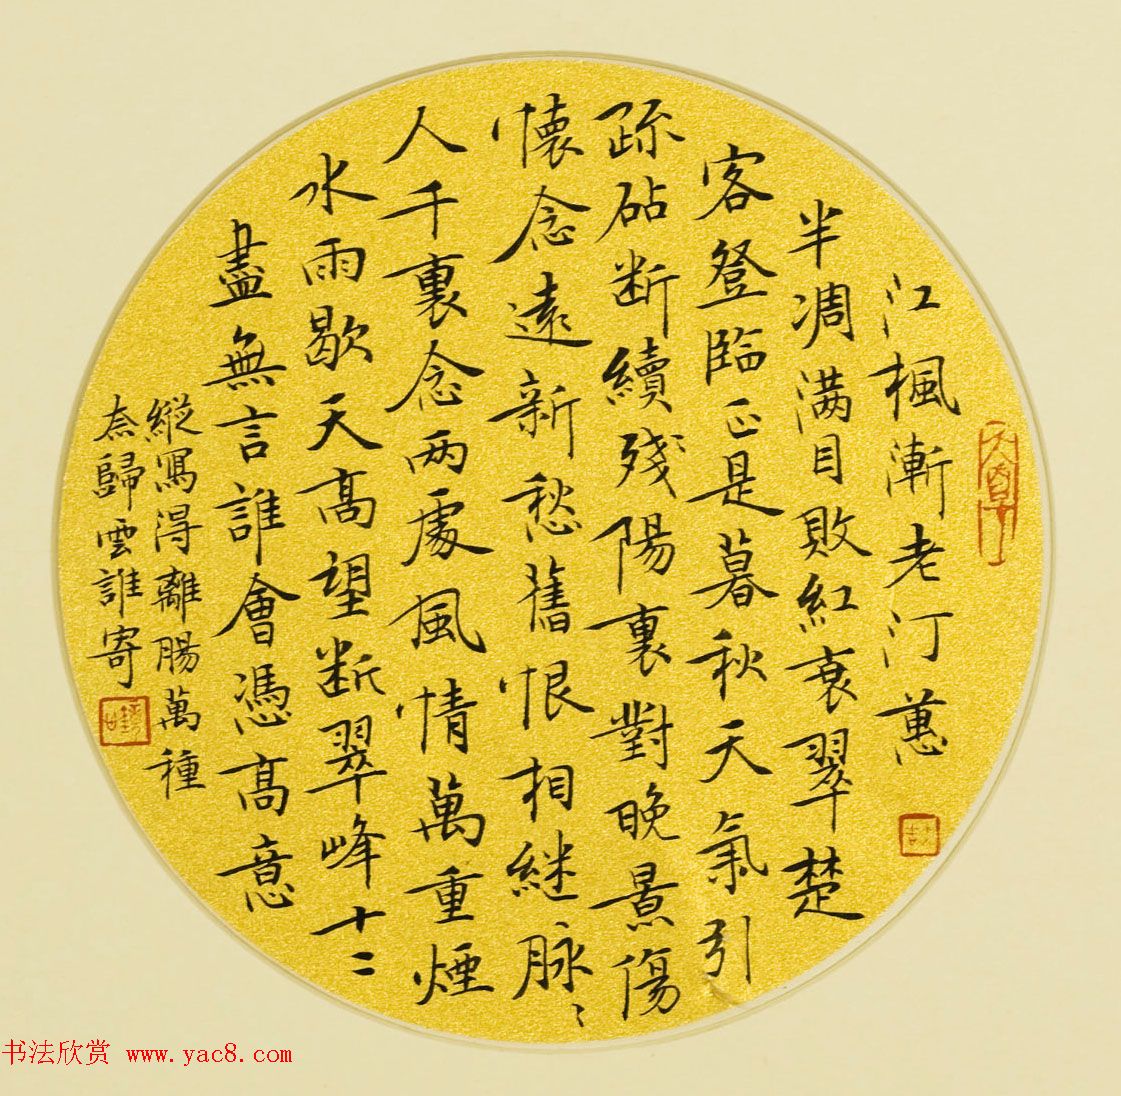 江楓漸老汀蕙
半凋满目敗紅衰翠楚
客登臨正是暮秋天氣引
疏砧断續殘陽裏對晚景傷
懷念遠新愁舊恨相継脉〻
人千裏念两處風情萬重煙
水雨歇天高望断翠峰十二
盡無言誰會憑高意
縱寫得離腸萬種
奈歸雲誰寄
书法欣赏 www.yac8.com